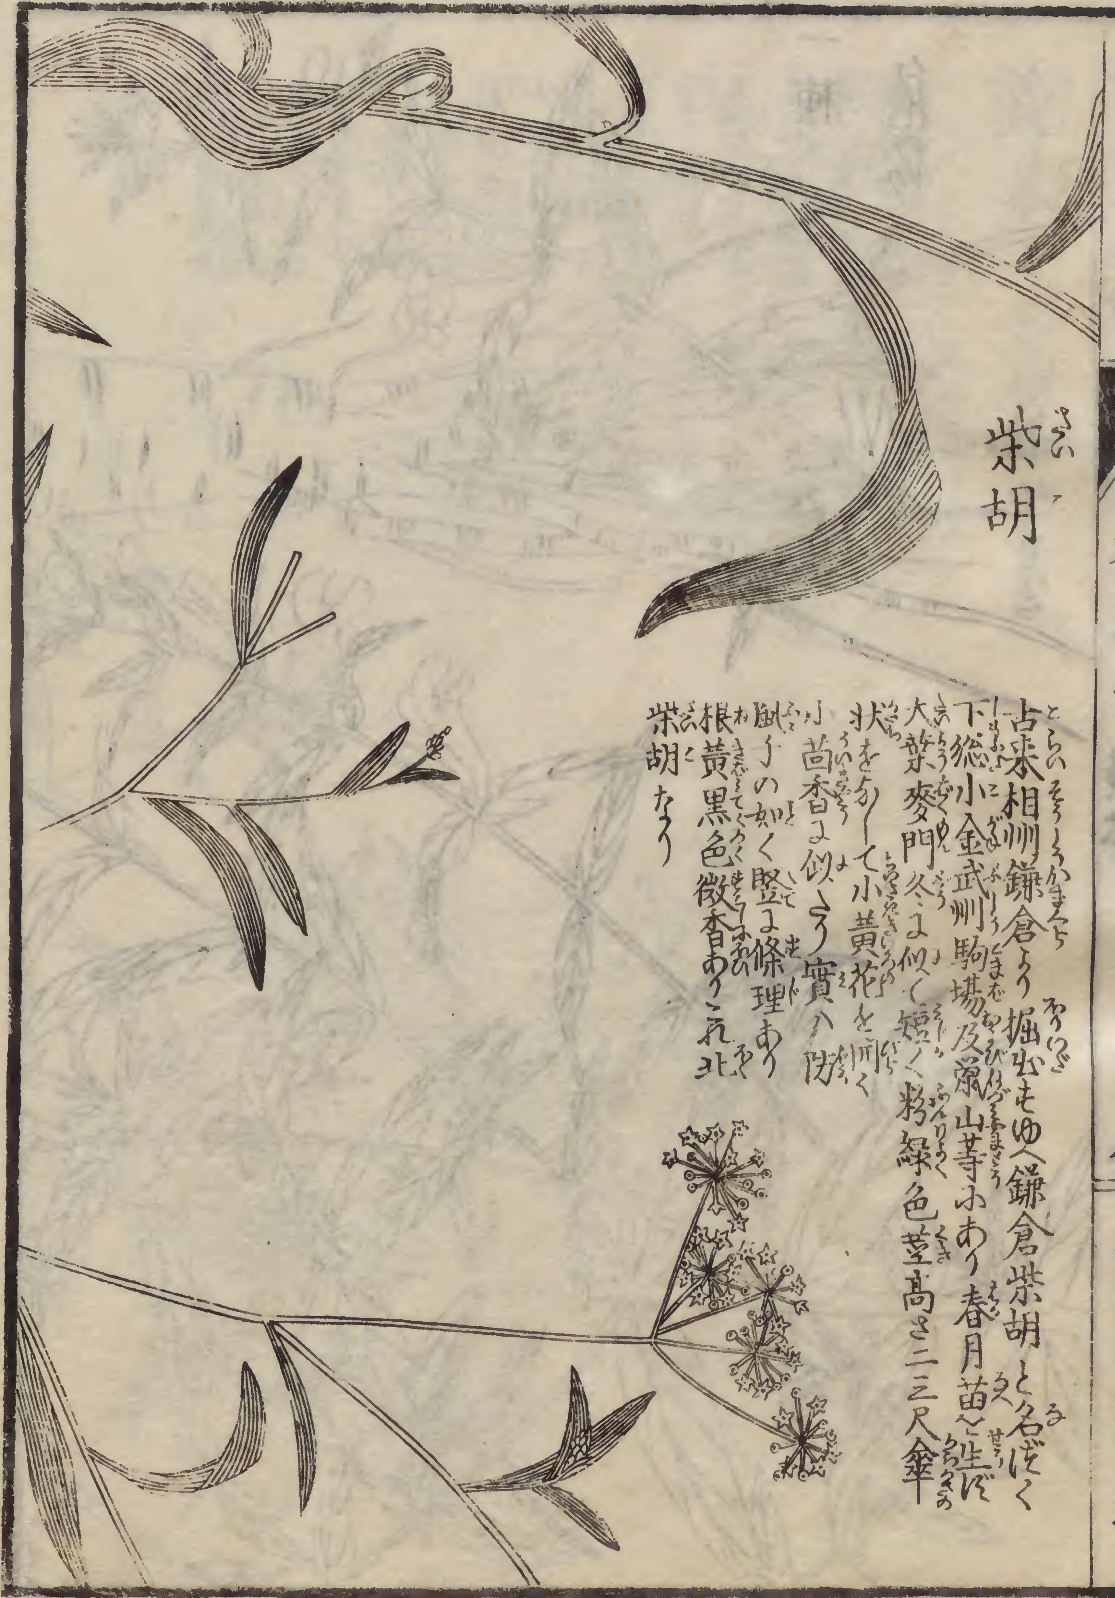 柴胡
古来相州鎌倉より掘出すゆへ鎌倉柴胡と名づく
下総小金武州駒場及嵐山等にあり春月苗を生ず
大葉麥門冬に似て短く粉緑色莖高さ二三尺傘
状をなして小黄花を開く
小茴香に似たり實ハ防
風子の如く竪に條理あり
根黄黒色微香ありこれ北
柴胡なり